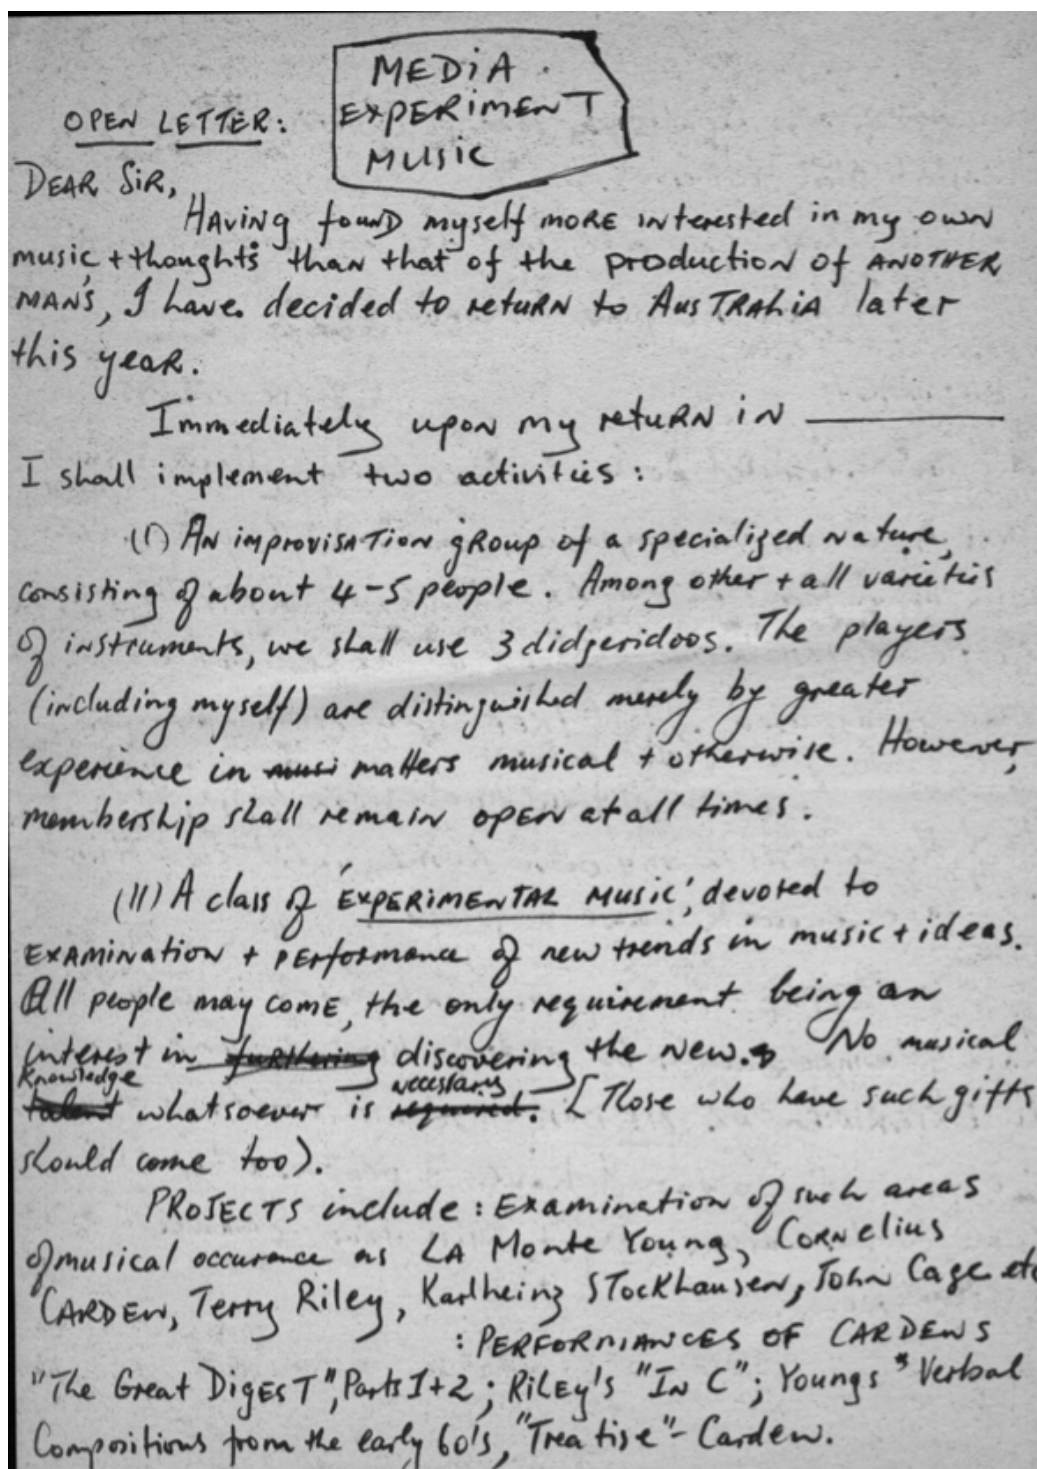 MEDIA.
EXPERIMENT
MUSIC
OPEN LETTER:
DEAR SIR,
HAVING found myself MORE INterested in my own
music + thoughts than that of the production of ANOTHER
MAN'S, I have decided to retuRN to AusTRAliA later
this yeaR.
Immediately upon my retuRN in
I shall implement two activities:
(I) AN improvisATion gRoup of a specialized nature,
consisting of about 4-5 people. Among other + all varieties
of instruments, we shall use 3 didgeridoos. The players
(including myself) are distinguished merely by greater
experience in musi matters musical + otherwise. However,
membership shall remain open at all times.
(II) A class of 'EXPERIMENTAL MUSIC', devoted to
EXAMINAtion + PERformance of new trends in music + ideas.
All people may come, the only requirement being an
interest in furthering discovering the new. No musical
knowledge necessary
talent whatsoever is required. [Those who have such gifts
should come too).
PROJECTS include: Examination of such areas
of musical occurance as LA Monte Young, CORNelius
CARDEW, Terry Riley, Karlheinz STockhausen, John Cage etc
: PERFORMANCES OF CARDEWS
"The Great DigesT", Parts 1+2; Riley's "In C"; Youngs " Verbal
Compositions from the early 60's, "Treatise" - Cardew.